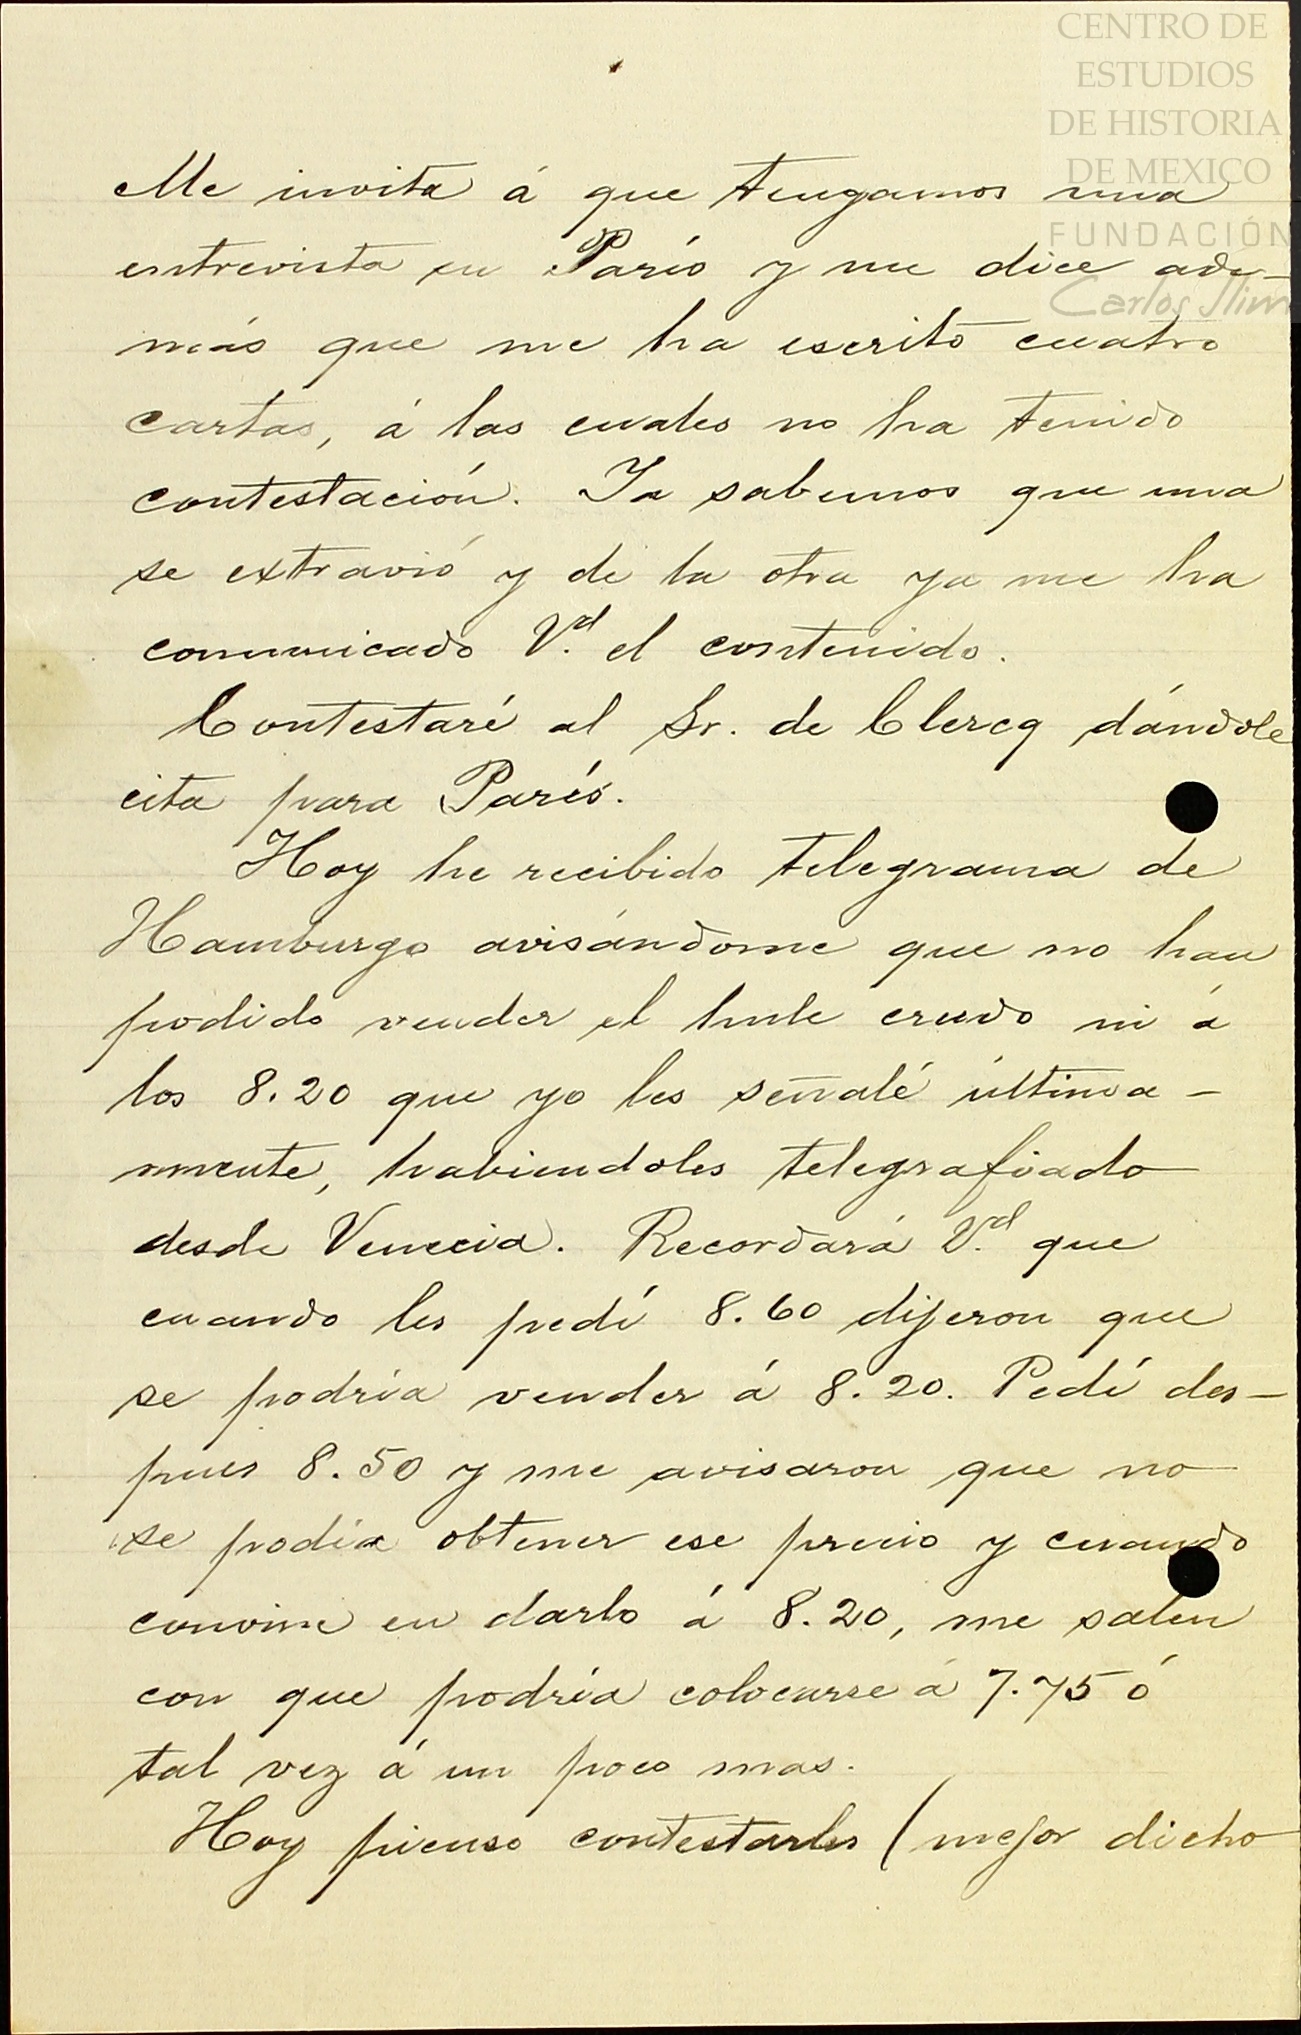 CENTRO DE
ESTUDIOS
DE HISTORIA
DE MEXICO
FUNDACIÓN
Carlos Slim
Me invita á que tengamos una
entrevista en París y me dice ade-
más que me ha escrito cuatro
cartas, á las cuales no ha tenido
contestación. Ya sabemos que una
se extravió y de la otra ya me ha
comunicado Vd. el contenido.
Contestaré al Sr. de Clercq dándole
cita para París.
Hoy he recibido telegrama de
Hamburgo avisándome que no han
podido vender el hule crudo ni á
los 8.20 que yo les señalé última-
mente, habiendoles telegrafiado
desde Venecia. Recordará Vd. que
cuando les pedí 8.60 dijeron que
se podría vender á 8.20. Pedí des-
pues 8.50 y me avisaron que no
se podía obtener ese precio y cuando
convine en darlo á 8.20, me salen
con que podría colocarse á 7.75 ó
tal vez á un poco mas.
Hoy pienso contestarles (mejor dicho